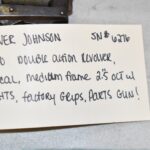 VER JOHNSON SN# 6276
DOUBLE ACTION REVOLVER,
CAL, MEDIUM FRAME 25 OCT W/
HTS, FACTORY GRIPS, PARTS GUN!